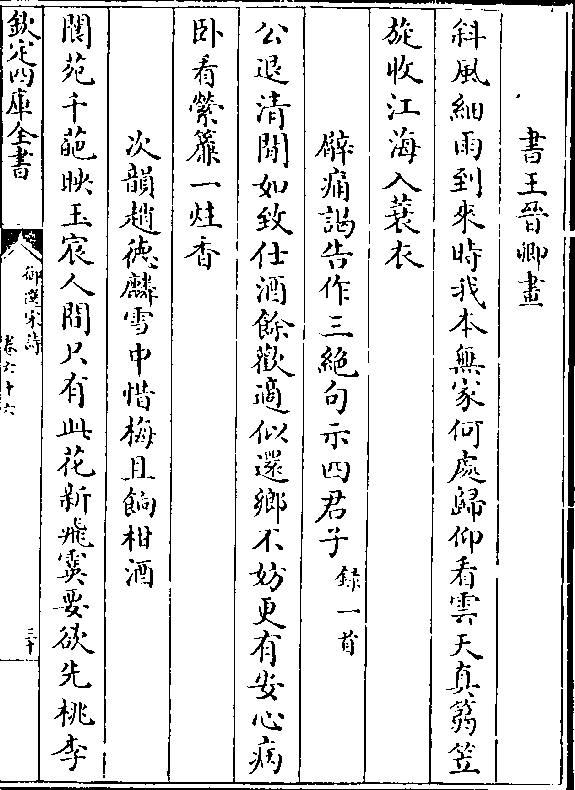 書王晉卿畫
斜風細雨到來時我本無家何處歸仰看雲天真蒻笠
旋收江海入蓑衣
臂痛謁告作三絶句示四君子 錄一首
公退清閒如致仕酒餘歡適似還鄉不妨更有安心病
卧看縈簾一炷香
次韻趙德麟雪中惜梅且餉柑酒
閬苑千葩映玉宸人間只有此花新飛霙要欲先桃李
欽定四庫全書
御選宋詩
卷六十六
三十